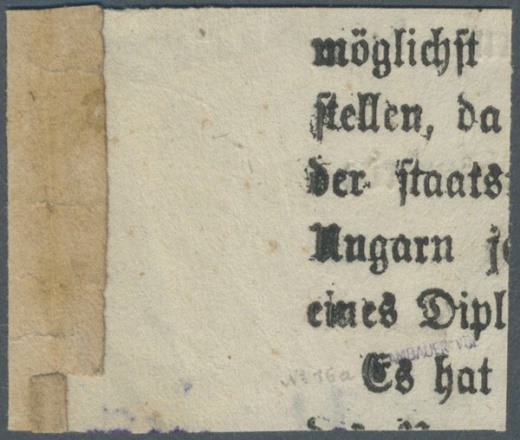 möglichst
stellen, da
der staats-
Ungarn je
eines Dipl
Es hat
No 16a